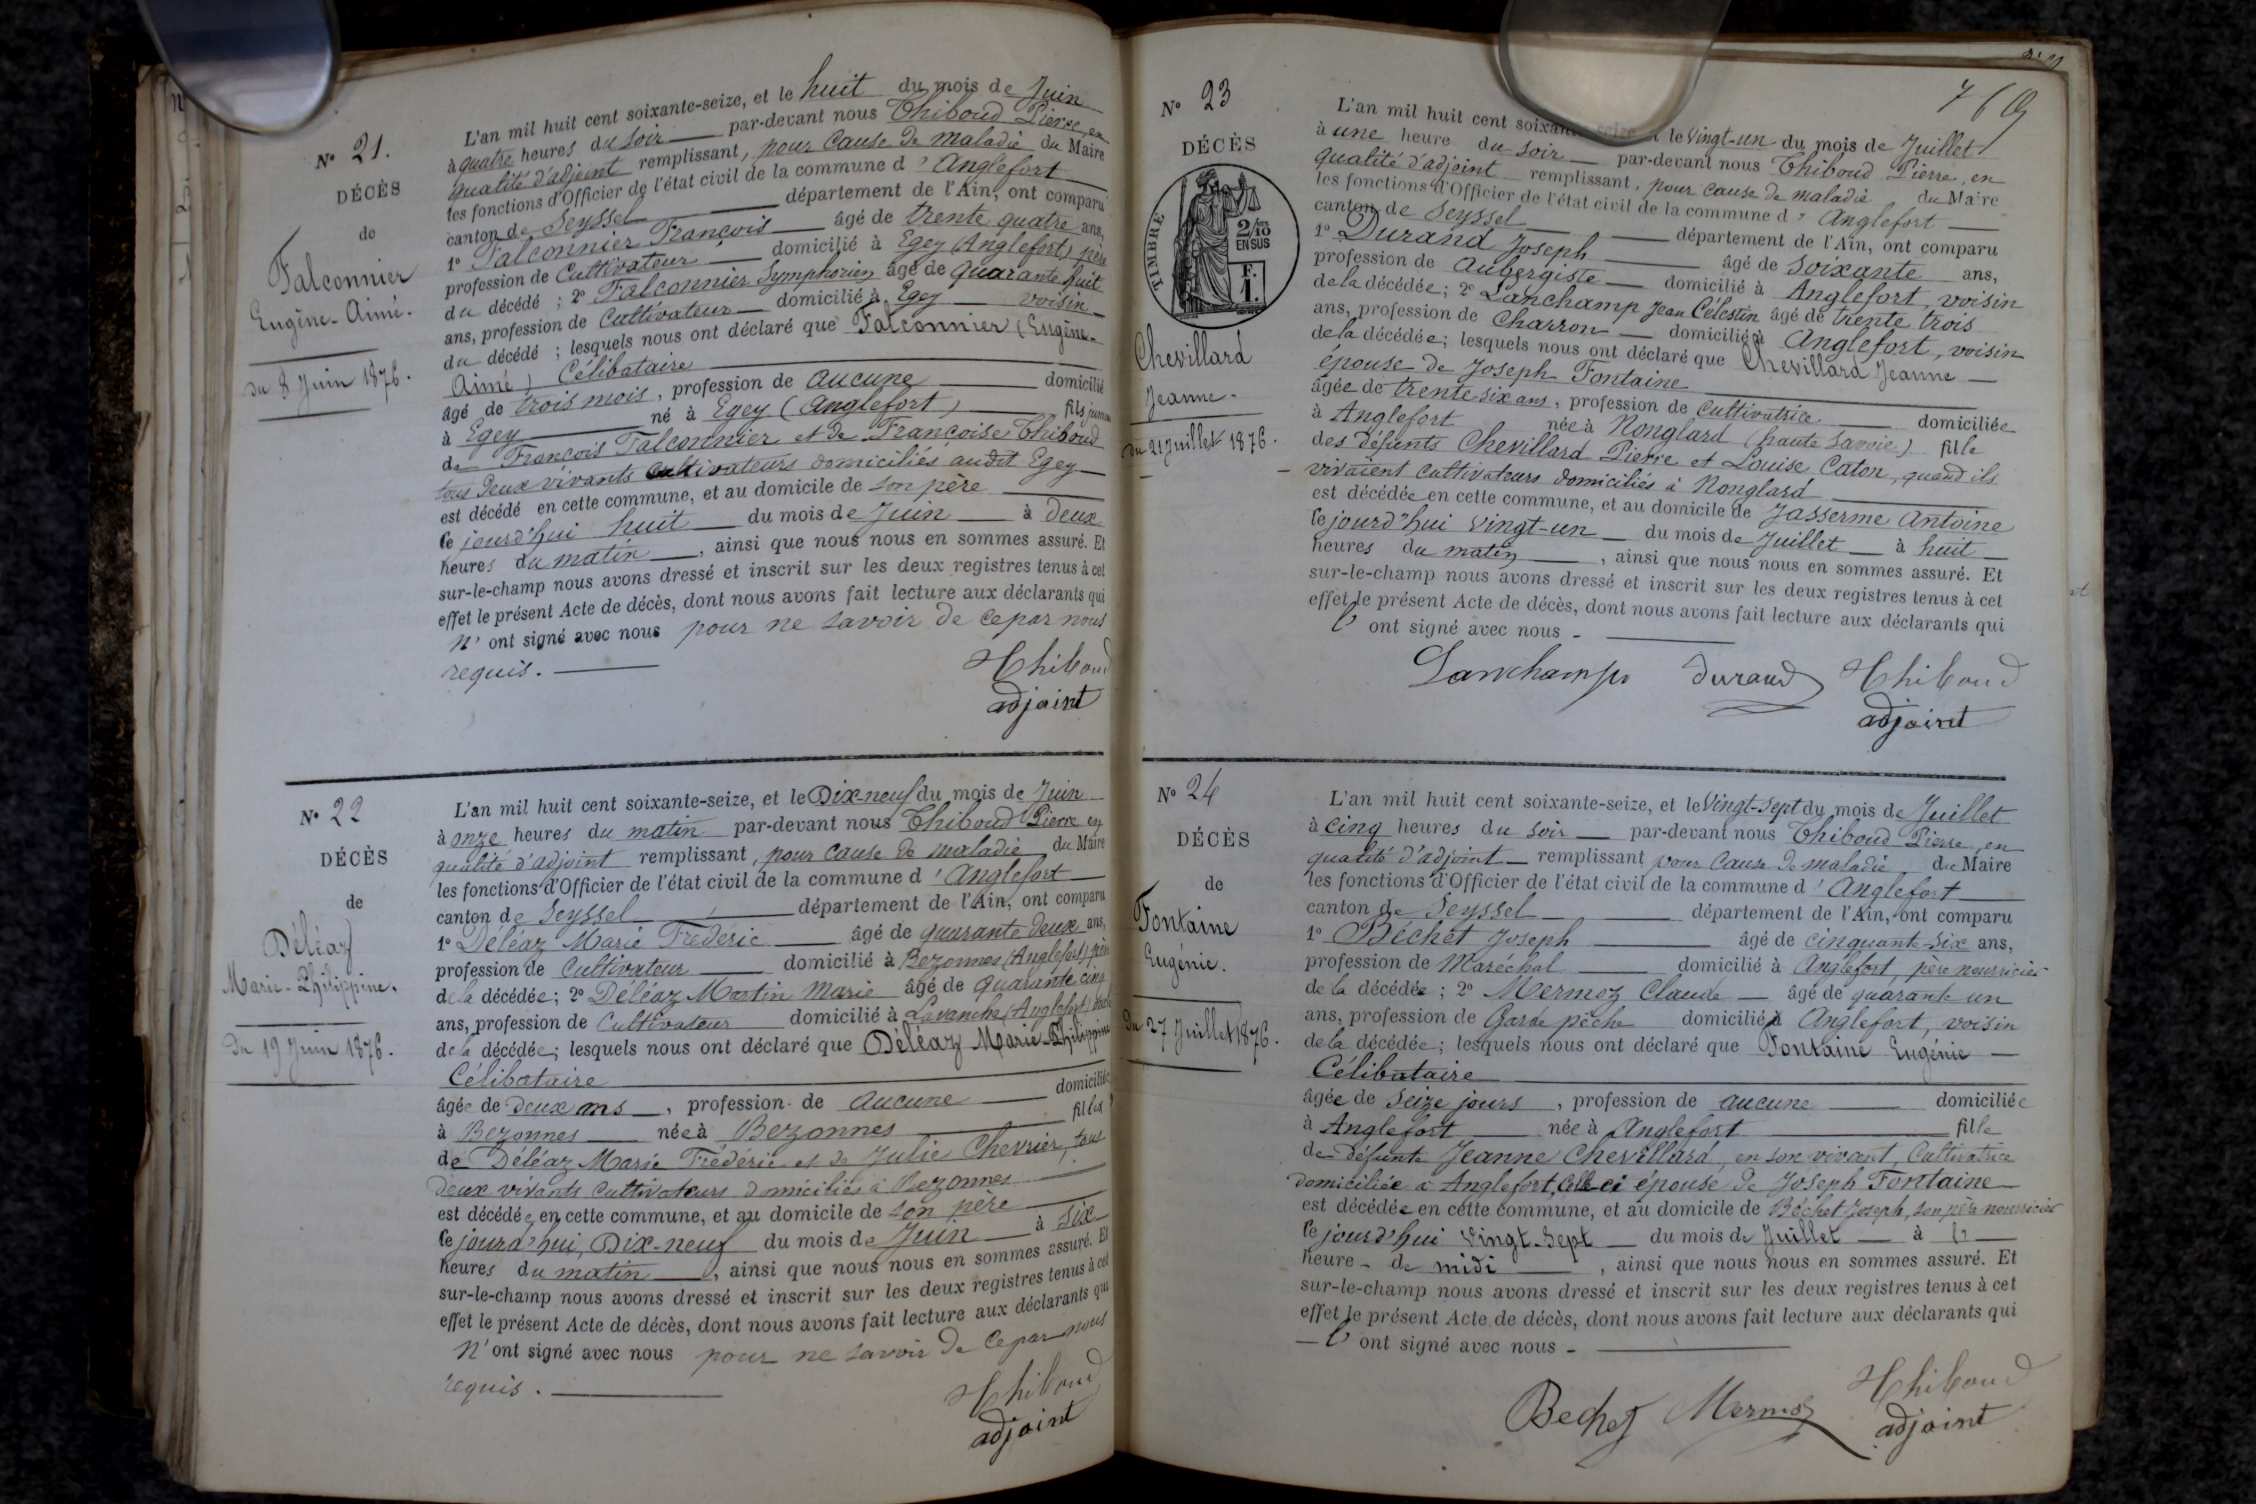 N° 21.
DÉCÈS
de
Falconnier
Eugène-Aimé.
du 8 Juin 1876.
L'an mil huit cent soixante-seize, et le huit du mois de Juin
à quatre heures du soir par-devant nous Thiboud Pierre, en
qualité d'adjoint remplissant, pour cause de maladie du Maire
les fonctions d'Officier de l'état civil de la commune d'Anglefort
canton de Seyssel département de l'Ain, ont comparu
1° Falconnier François âgé de trente quatre ans,
profession de Cultivateur domicilié à Egey (Anglefort) père
du décédé ; 2° Falconnier Symphorien âgé de quarante huit
ans, profession de Cultivateur domicilié à Egey voisin
du décédé ; lesquels nous ont déclaré que Falconnier (Eugène-
Aimé) Célibataire
âgé de trois mois, profession de aucune domicilié
à Egey né à Egey (Anglefort) fils
de François Falconnier et de Françoise Thiboud
tous deux vivants cultivateurs domiciliés audit Egey
est décédé en cette commune, et au domicile de son père
ce jourd'hui huit du mois de Juin à deux
heures du matin, ainsi que nous nous en sommes assuré. Et
sur-le-champ nous avons dressé et inscrit sur les deux registres tenus à cet
effet le présent Acte de décès, dont nous avons fait lecture aux déclarants qui
n'ont signé avec nous pour ne savoir de ce par nous
requis.
Thiboud
adjoint
N° 22
DÉCÈS
de
Déléaz
Marie-Philippine.
du 19 Juin 1876.
L'an mil huit cent soixante-seize, et le Dix-neuf du mois de Juin
à onze heures du matin par-devant nous Thiboud Pierre en
qualité d'adjoint remplissant, pour cause de maladie du Maire
les fonctions d'Officier de l'état civil de la commune d'Anglefort
canton de Seyssel département de l'Ain, ont comparu
1° Déléaz Marie Frédéric âgé de quarante deux ans,
profession de Cultivateur domicilié à Bezonnes (Anglefort) père
de la décédée; 2° Déléaz Martin Marie âgé de quarante cinq
ans, profession de Cultivateur domicilié à Lavanche (Anglefort)
de la décédée; lesquels nous ont déclaré que Déléaz Marie Philippine
Célibataire
âgée de deux ans, profession de aucune domiciliée
à Bezonnes née à Bezonnes fille
de Déléaz Marie Frédéric et de Julie Chevrier, tous
deux vivants cultivateurs domiciliés à Bezonnes
est décédée en cette commune, et au domicile de son père
ce jourd'hui, Dix-neuf du mois de Juin à six
heures du matin, ainsi que nous nous en sommes assuré. Et
sur-le-champ nous avons dressé et inscrit sur les deux registres tenus à cet
effet le présent Acte de décès, dont nous avons fait lecture aux déclarants qui
n'ont signé avec nous pour ne savoir de ce par nous
requis.
Thiboud
adjoint
N° 23
DÉCÈS
TIMBRE
2/10
EN SUS
F.
1.
Chevillard
Jeanne.
du 21 Juillet 1876.
L'an mil huit cent soixante-seize et le Vingt-un du mois de Juillet
à une heure du soir par-devant nous Thiboud Pierre, en
qualité d'adjoint remplissant, pour cause de maladie du Maire
les fonctions d'Officier de l'état civil de la commune d'Anglefort
canton de Seyssel département de l'Ain, ont comparu
1° Durand Joseph âgé de soixante ans,
profession de Aubergiste domicilié à Anglefort, voisin
de la décédée; 2° Lanchamp Jean Célestin âgé de trente trois
ans, profession de Charron domicilié à Anglefort, voisin
de la décédée; lesquels nous ont déclaré que Chevillard Jeanne
épouse de Joseph Fontaine
âgée de trente-six ans, profession de Cultivatrice domiciliée
à Anglefort née à Nonglard (haute Savoie) fille
des défunts Chevillard Pierre et Louise Caton, quand ils
vivaient cultivateurs domiciliés à Nonglard
est décédée en cette commune, et au domicile de Jasserme Antoine
ce jourd'hui vingt-un du mois de Juillet à huit
heures du matin, ainsi que nous nous en sommes assuré. Et
sur-le-champ nous avons dressé et inscrit sur les deux registres tenus à cet
effet le présent Acte de décès, dont nous avons fait lecture aux déclarants qui
ont signé avec nous -
Lanchamp Durand Thiboud
adjoint
N° 24
DÉCÈS
de
Fontaine
Eugénie.
du 27 Juillet 1876.
L'an mil huit cent soixante-seize, et le Vingt-sept du mois de Juillet
à cinq heures du soir par-devant nous Thiboud Pierre, en
qualité d'adjoint remplissant pour cause de maladie du Maire
les fonctions d'Officier de l'état civil de la commune d'Anglefort
canton de Seyssel département de l'Ain, ont comparu
1° Béchet Joseph âgé de cinquante-six ans,
profession de Maréchal domicilié à Anglefort, père nourricier
de la décédée; 2° Mermoz Claude âgé de quarante un
ans, profession de Garde pêche domicilié à Anglefort, voisin
de la décédée; lesquels nous ont déclaré que Fontaine Eugénie
Célibataire
âgée de Seize jours, profession de aucune domiciliée
à Anglefort née à Anglefort fille
de défunte Jeanne Chevillard, en son vivant, Cultivatrice
domiciliée à Anglefort, Celle-ci épouse de Joseph Fontaine
est décédée en cette commune, et au domicile de Béchet Joseph, son père nourricier
ce jourd'hui vingt-sept du mois de Juillet à
heure de midi, ainsi que nous nous en sommes assuré. Et
sur-le-champ nous avons dressé et inscrit sur les deux registres tenus à cet
effet le présent Acte de décès, dont nous avons fait lecture aux déclarants qui
ont signé avec nous -
Bechet Mermoz Thiboud
adjoint